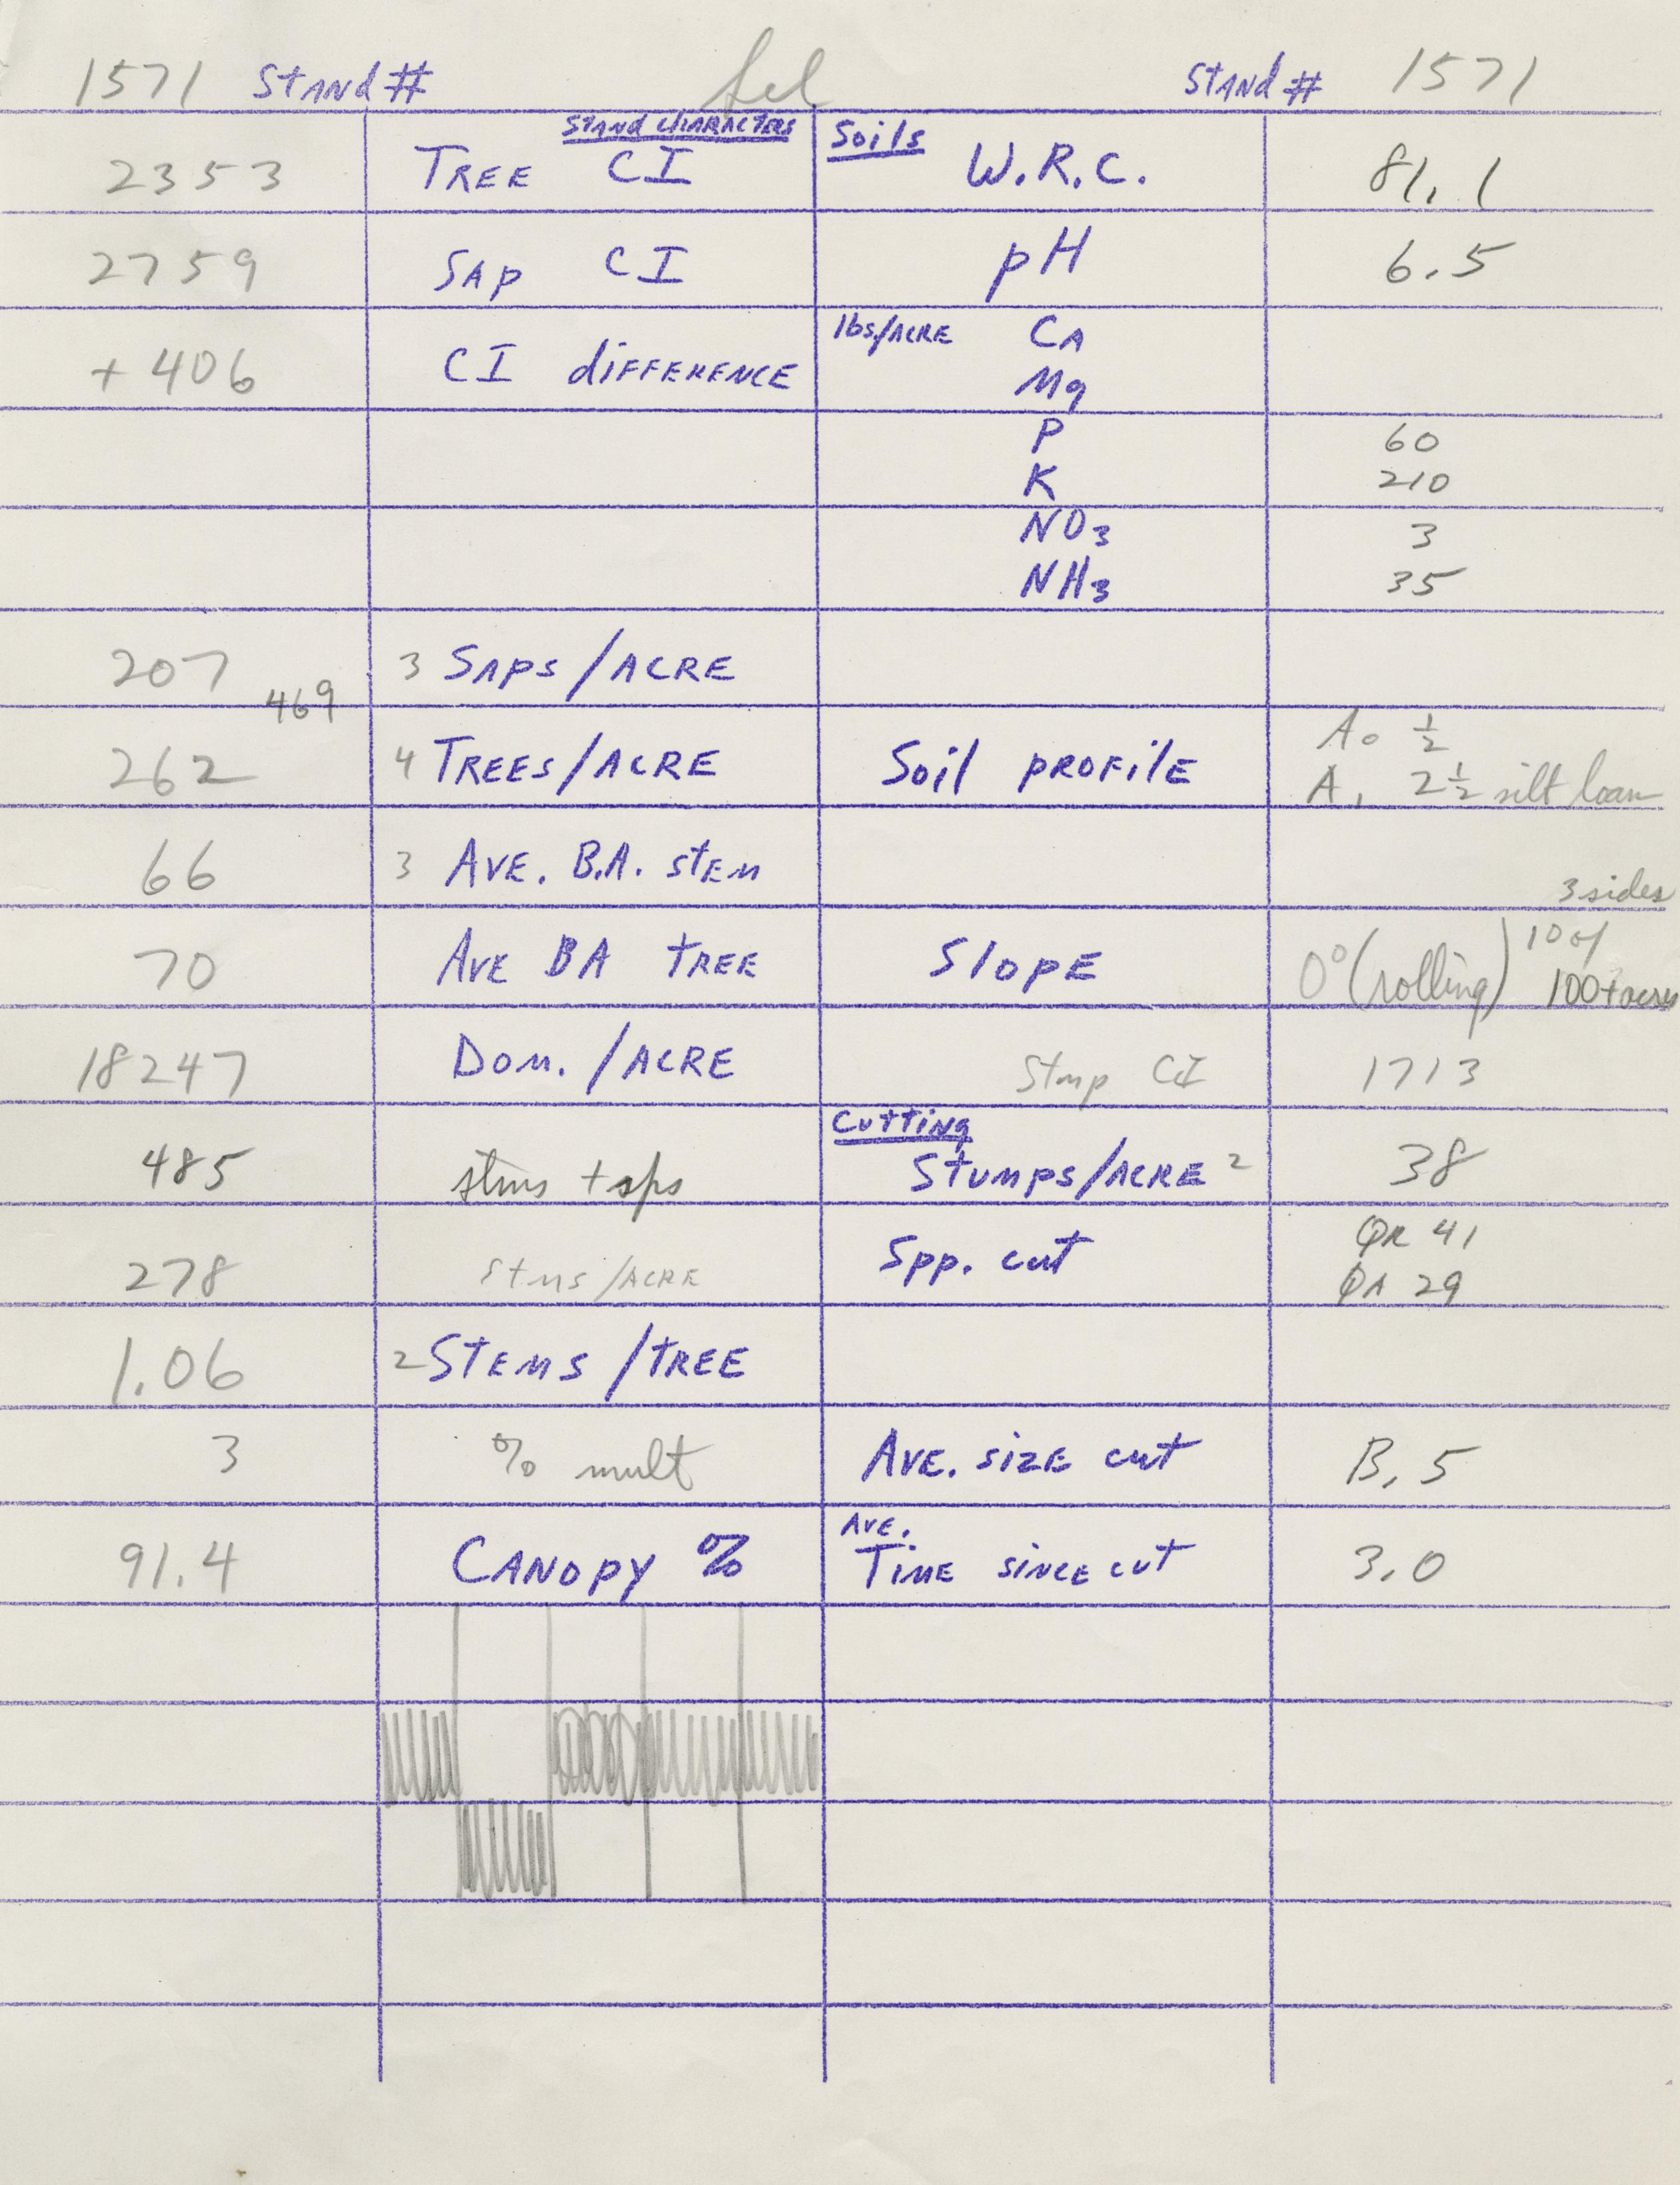 1571 Stand # Stand # 1571
Stand Characters Soils
2353 Tree CI W.R.C. 81.1
2759 Sap CI pH 6.5
+406 CI difference lbs/Acre Ca
Mg
P 60
K 210
NO3 3
NH3 35
207 3 Saps/Acre
469
262 4 Trees/Acre Soil profile A0 ½
A1 2½ silt loam
66 3 Ave. B.A. stem
3 sides
70 Ave BA tree Slope 0° (rolling) 10 of
100+ acres
18247 Dom./Acre Stmp CI 1713
Cutting
485 stms + sps Stumps/Acre 2 38
278 Stms/Acre Spp. cut QR 41
QA 29
1.06 2 Stems/tree
3 % mult Ave. size cut B.5
91.4 Canopy % Ave.
Time since cut 3.0